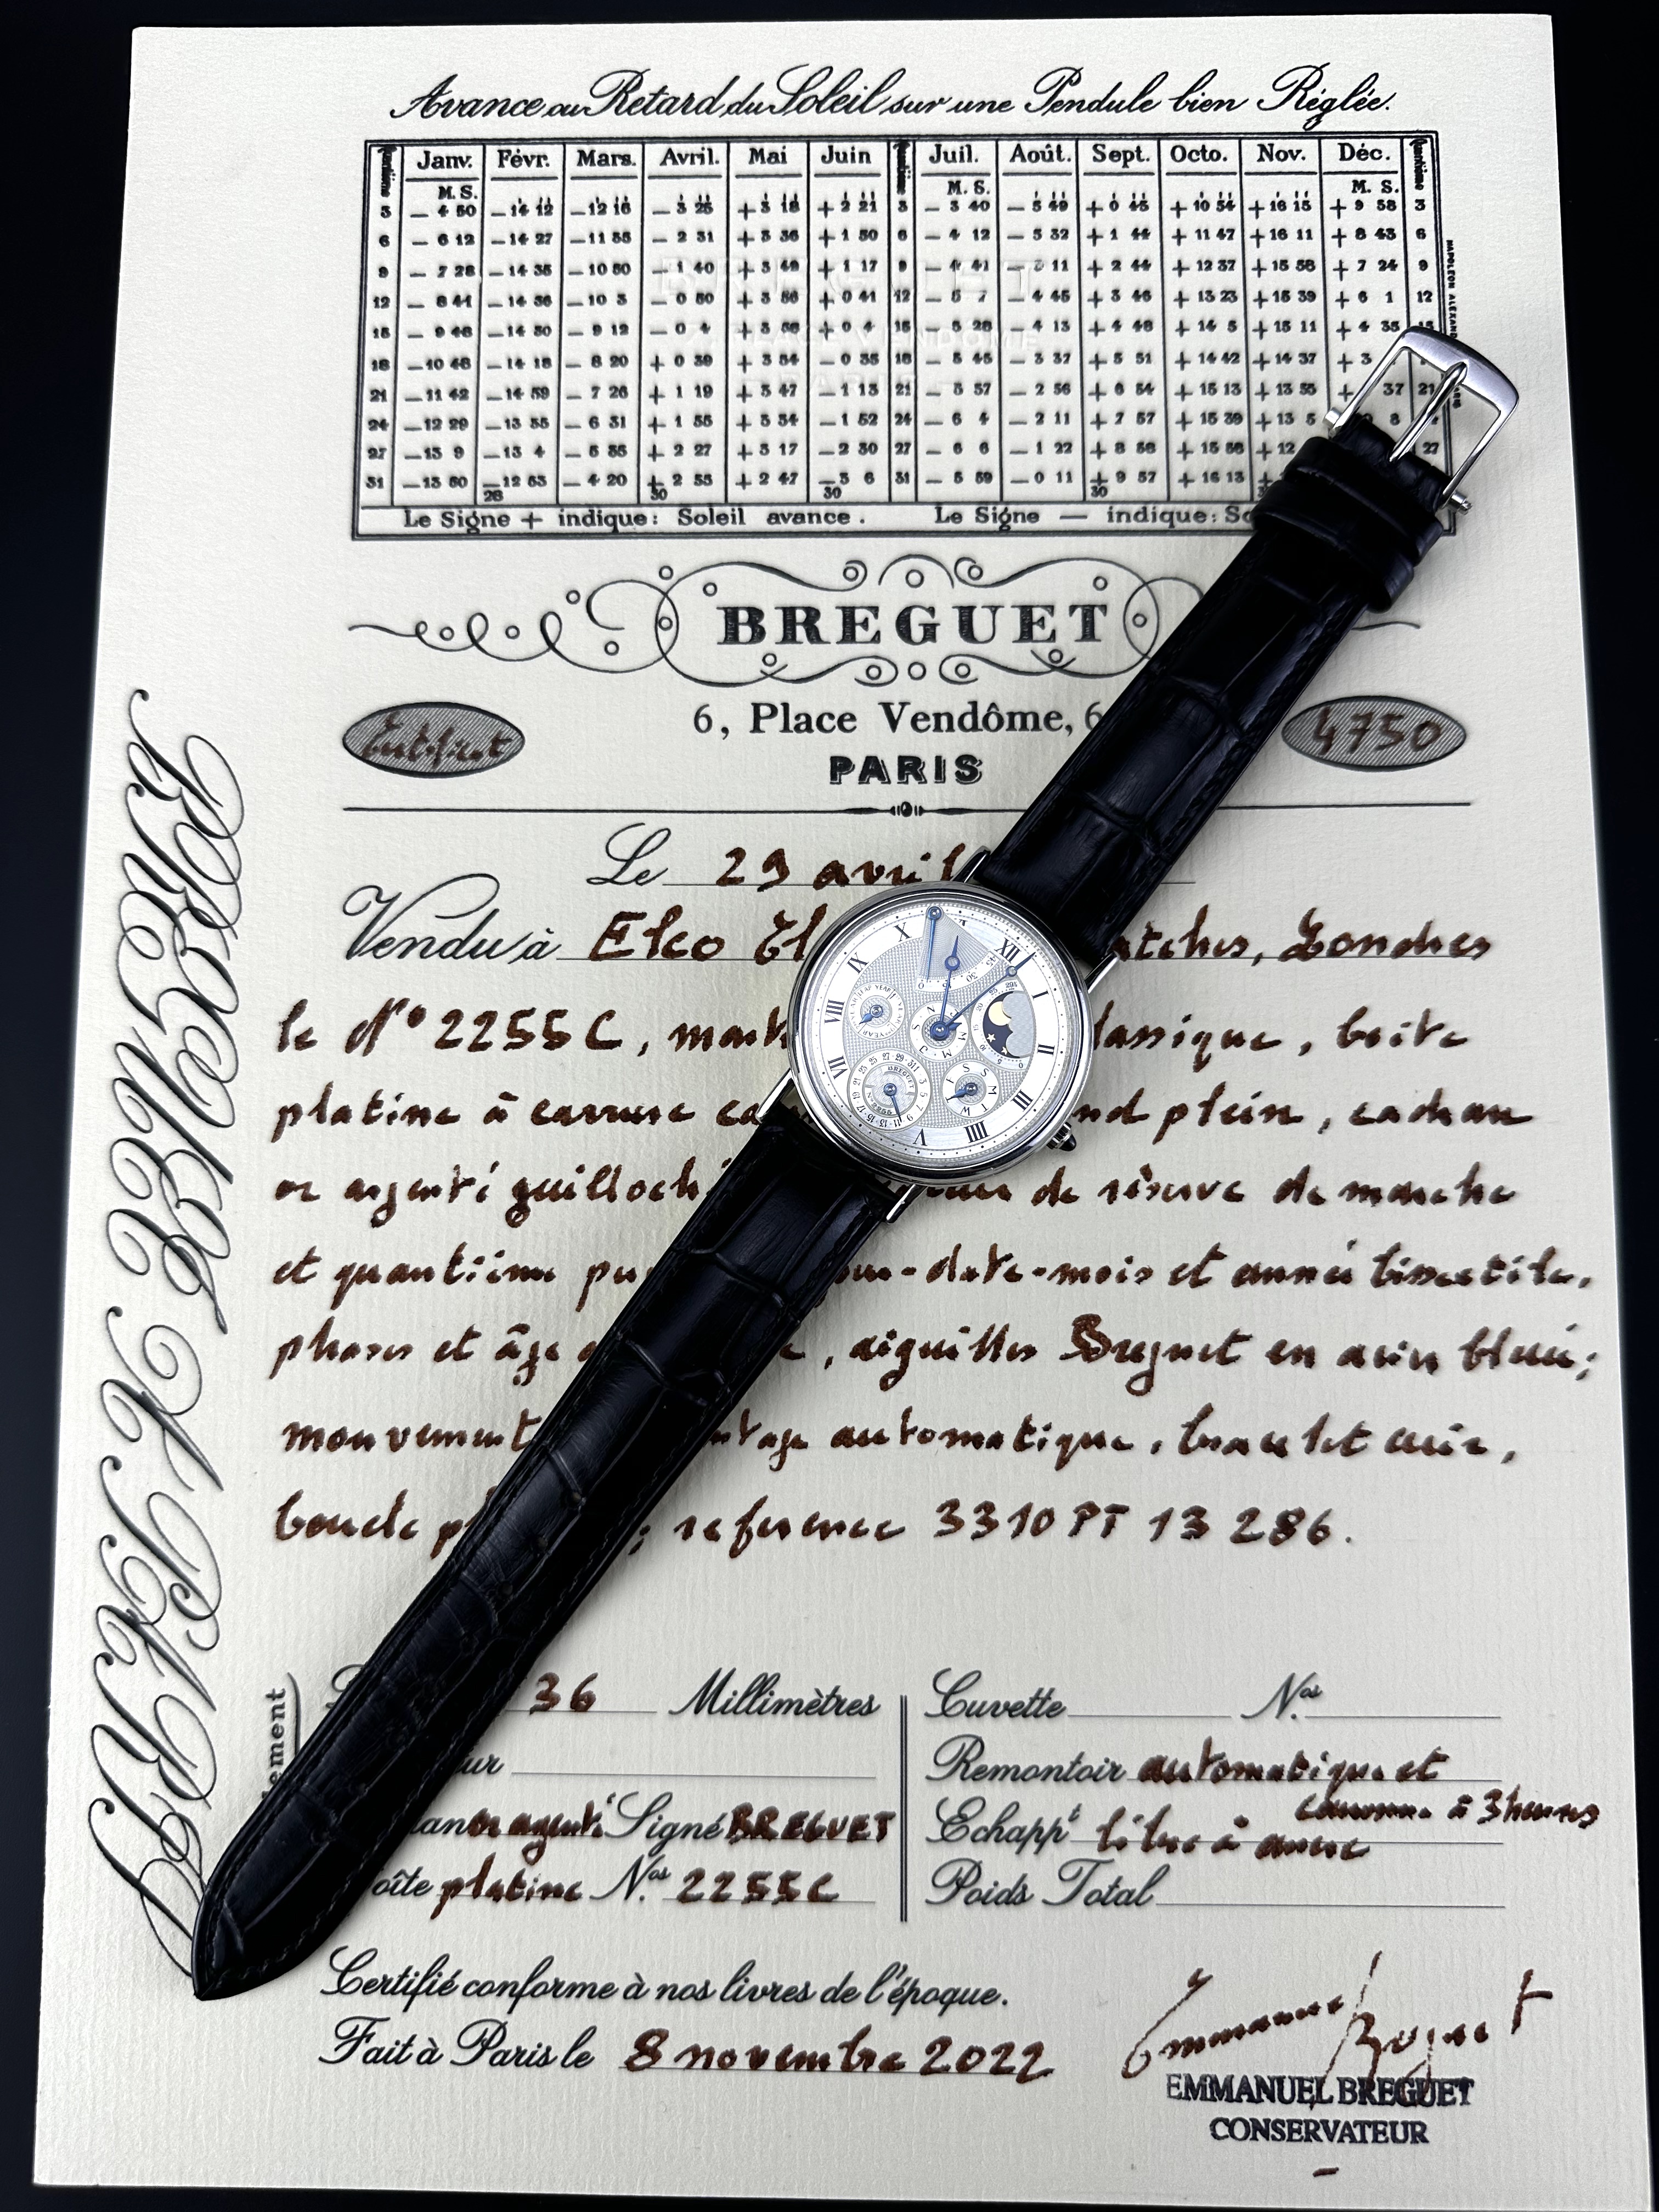 Avance ou Retard du Soleil sur une Pendule bien Réglée.
Quantième Janv. Févr. Mars. Avril. Mai Juin Quantième Juil. Août. Sept. Octo. Nov. Déc. Quantième
M. S. M. S. M. S.
3 — 4 50 — 14 12 — 12 16 — 3 25 + 3 18 + 2 21 3 — 3 40 — 5 49 + 0 45 + 10 54 + 16 15 + 9 58 3
6 — 6 12 — 14 27 — 11 35 — 2 31 + 3 36 + 1 50 6 — 4 12 — 5 32 + 1 44 + 11 47 + 16 11 + 8 43 6
9 — 7 28 — 14 35 — 10 50 — 1 40 + 3 49 + 1 17 9 — 4 41 — 11 + 2 44 + 12 37 + 15 58 + 7 24 9
12 — 8 41 — 14 36 — 10 3 — 0 50 + 3 56 + 0 41 12 — 5 7 — 4 45 + 3 46 + 13 23 + 15 39 + 6 1 12
15 — 9 46 — 14 30 — 9 12 — 0 4 + 3 58 + 0 4 15 — 5 28 — 4 13 + 4 48 + 14 5 + 15 11 + 4 35 15
18 — 10 46 — 14 18 — 8 20 + 0 39 + 3 54 — 0 35 18 — 5 45 — 3 37 + 5 51 + 14 42 + 14 37 + 3
21 — 11 42 — 14 59 — 7 26 + 1 19 + 3 47 — 1 13 21 — 5 57 — 2 56 + 6 54 + 15 13 + 13 55 + 37 21
24 — 12 29 — 13 35 — 6 31 + 1 55 + 3 34 — 1 52 24 — 6 4 — 2 11 + 7 57 + 15 39 + 13 5 8
27 — 13 9 — 13 4 — 5 35 + 2 27 + 3 17 — 2 30 27 — 6 6 — 1 22 + 8 58 + 15 58 + 12 27
31 — 13 50 — 12 53 — 4 20 + 2 55 + 2 47 — 3 6 31 — 5 59 — 0 11 + 9 57 + 16 13
28 30 30 30
Le Signe + indique: Soleil avance. Le Signe — indique: So
BREGUET
6, Place Vendôme, 6
PARIS
Certificat
4750
Le 29 avril
Vendu à Elco Londres
le N° 2255C, classique, boîte
platine à carrure fond plein, cadran
or argenté guilloché de réserve de marche
et quantième date-mois et année bissextile,
phases et âge, aiguilles Breguet en acier bleui;
mouvement automatique, bracelet cuir,
boucle; reference 3310 PT 13 286.
X XII I II III IIII V VII VIII IX
BREGUET
36 Millimètres
or argenté Signé BREGUET
oîte platine N.os 2255C
Cuvette N.os
Remontoir automatique et
couronne à 3 heures
Echapp.t libre à ancre
Poids Total
Certifié conforme à nos livres de l'époque.
Fait à Paris le 8 novembre 2022
Emmanuel Breguet
EMMANUEL BREGUET
CONSERVATEUR